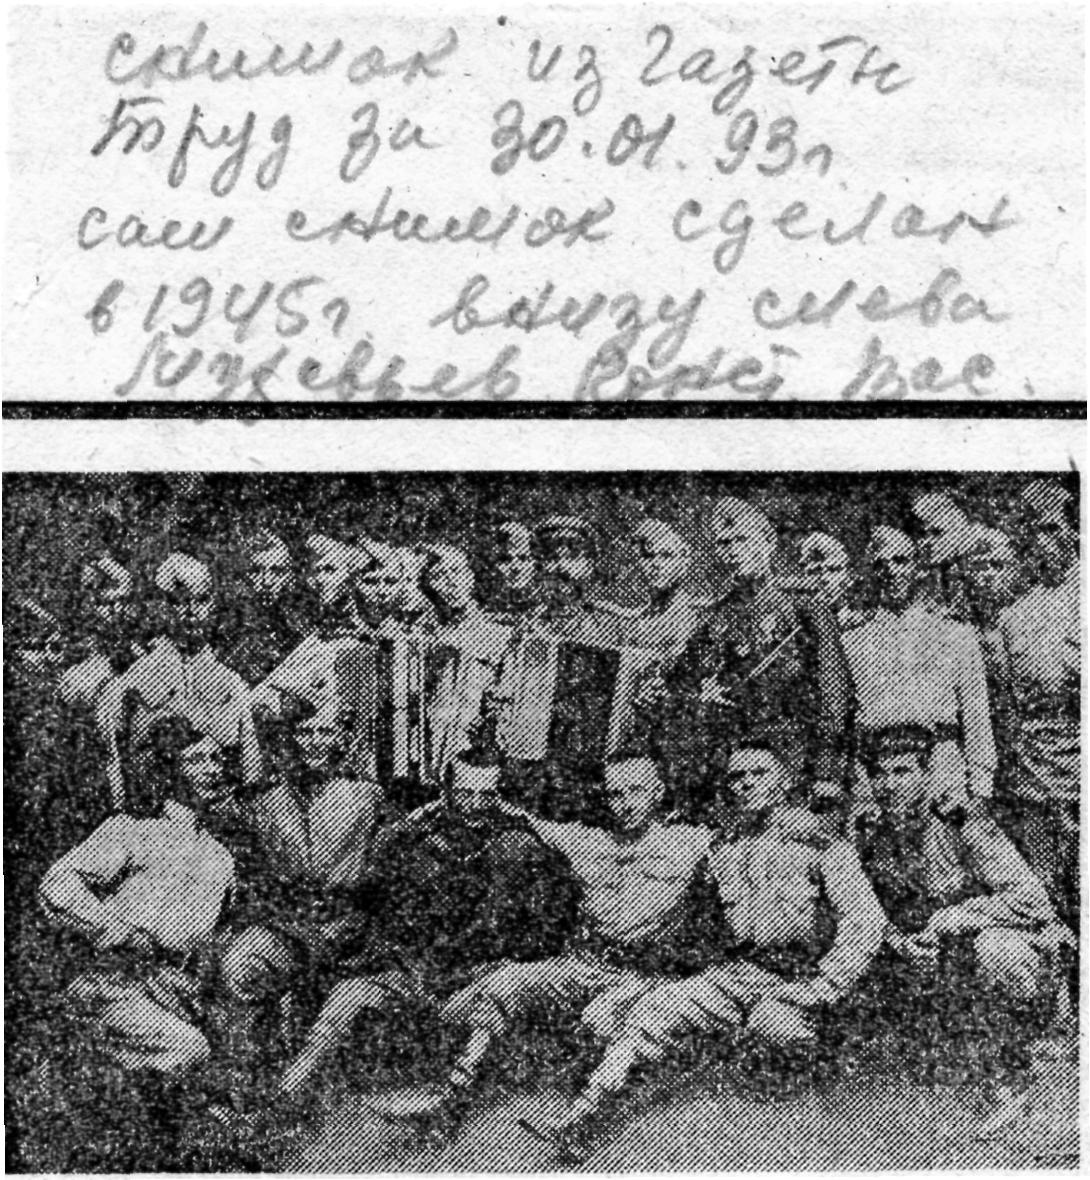 снимок из газеты
Труд за 30.01.93г.
сам снимок сделан
в 1945г. внизу слева
Конст. Вас.